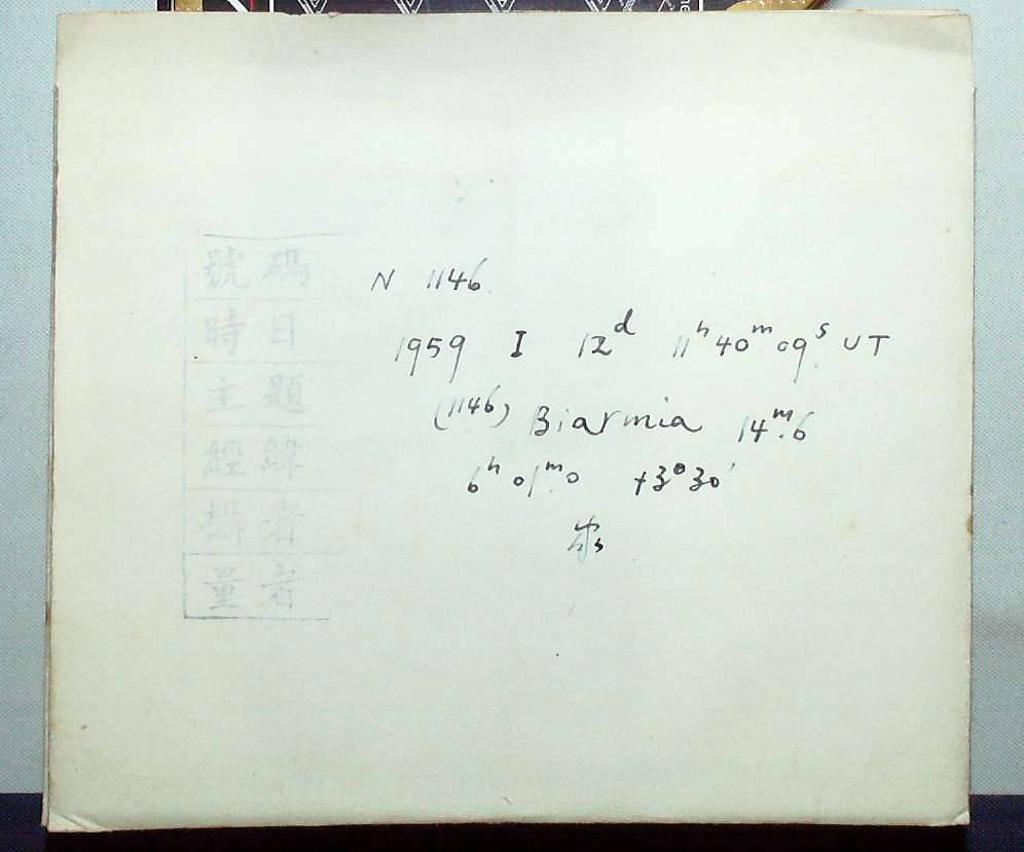 號碼
時日
主題
經緯
攝者
量者
N 1146
1959 I 12ᵈ 11ʰ40ᵐ09ˢ UT
(1146) Biarmia 14ᵐ.6
6ʰ01ᵐ.0 +3°30′